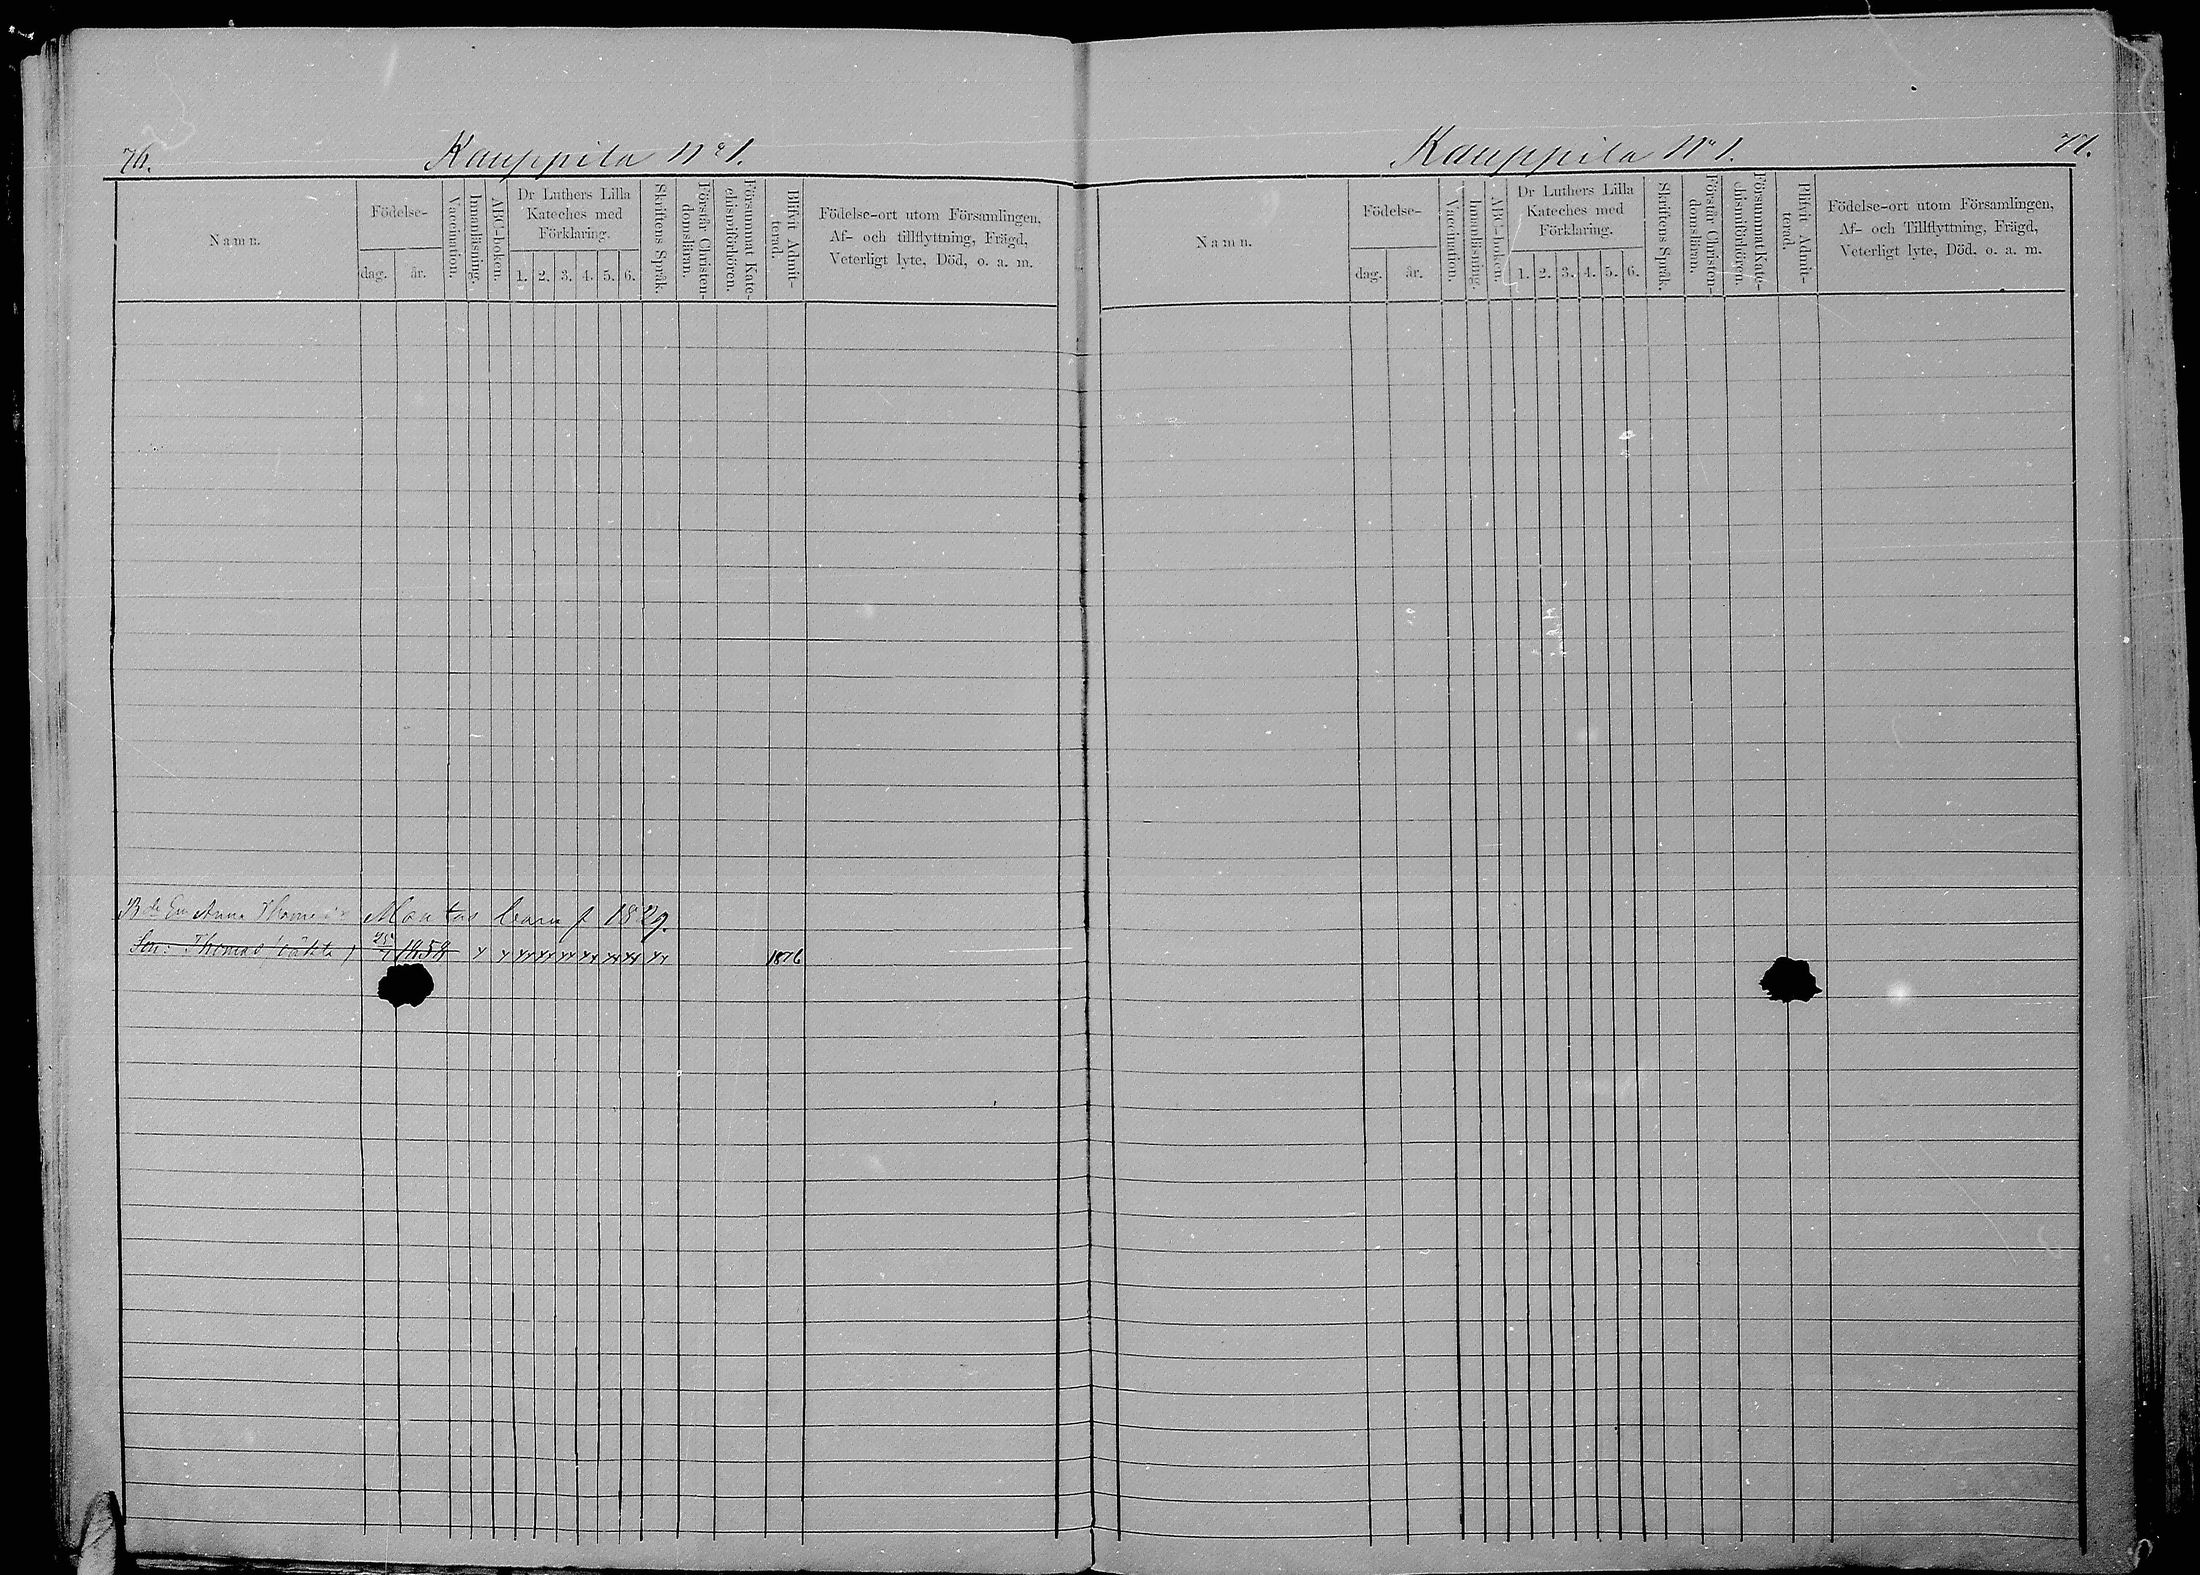 76.
Kauppila N:o 1.
Namn.
Födelse-
dag.
år.
Vaccination.
Innanläsning.
ABC-boken.
Dr Luthers Lilla
Kateches med
Förklaring.
1. 2. 3. 4. 5. 6.
Skriftens Språk.
Förstår Christen-
domsläran.
Försummat Kate-
chismiförhören.
Blifvit Admit-
terad.
Födelse-ort utom Församlingen,
Af- och tillflyttning, Frägd,
Veterligt lyte, Död, o. a. m.
Anna barn f 1829.
Son: Thomas (oäkta) 25/7 1858 1876
Kauppila N:o 1.
77.
Namn.
Födelse-
dag.
år.
Vaccination.
Innanläsning.
ABC-boken.
Dr Luthers Lilla
Kateches med
Förklaring.
1. 2. 3. 4. 5. 6.
Skriftens Språk.
Förstår Christen-
domsläran.
Försummat Kate-
chismiförhören.
Blifvit Admit-
terad.
Födelse-ort utom Församlingen,
Af- och Tillflyttning, Frägd,
Veterligt lyte, Död. o. a. m.